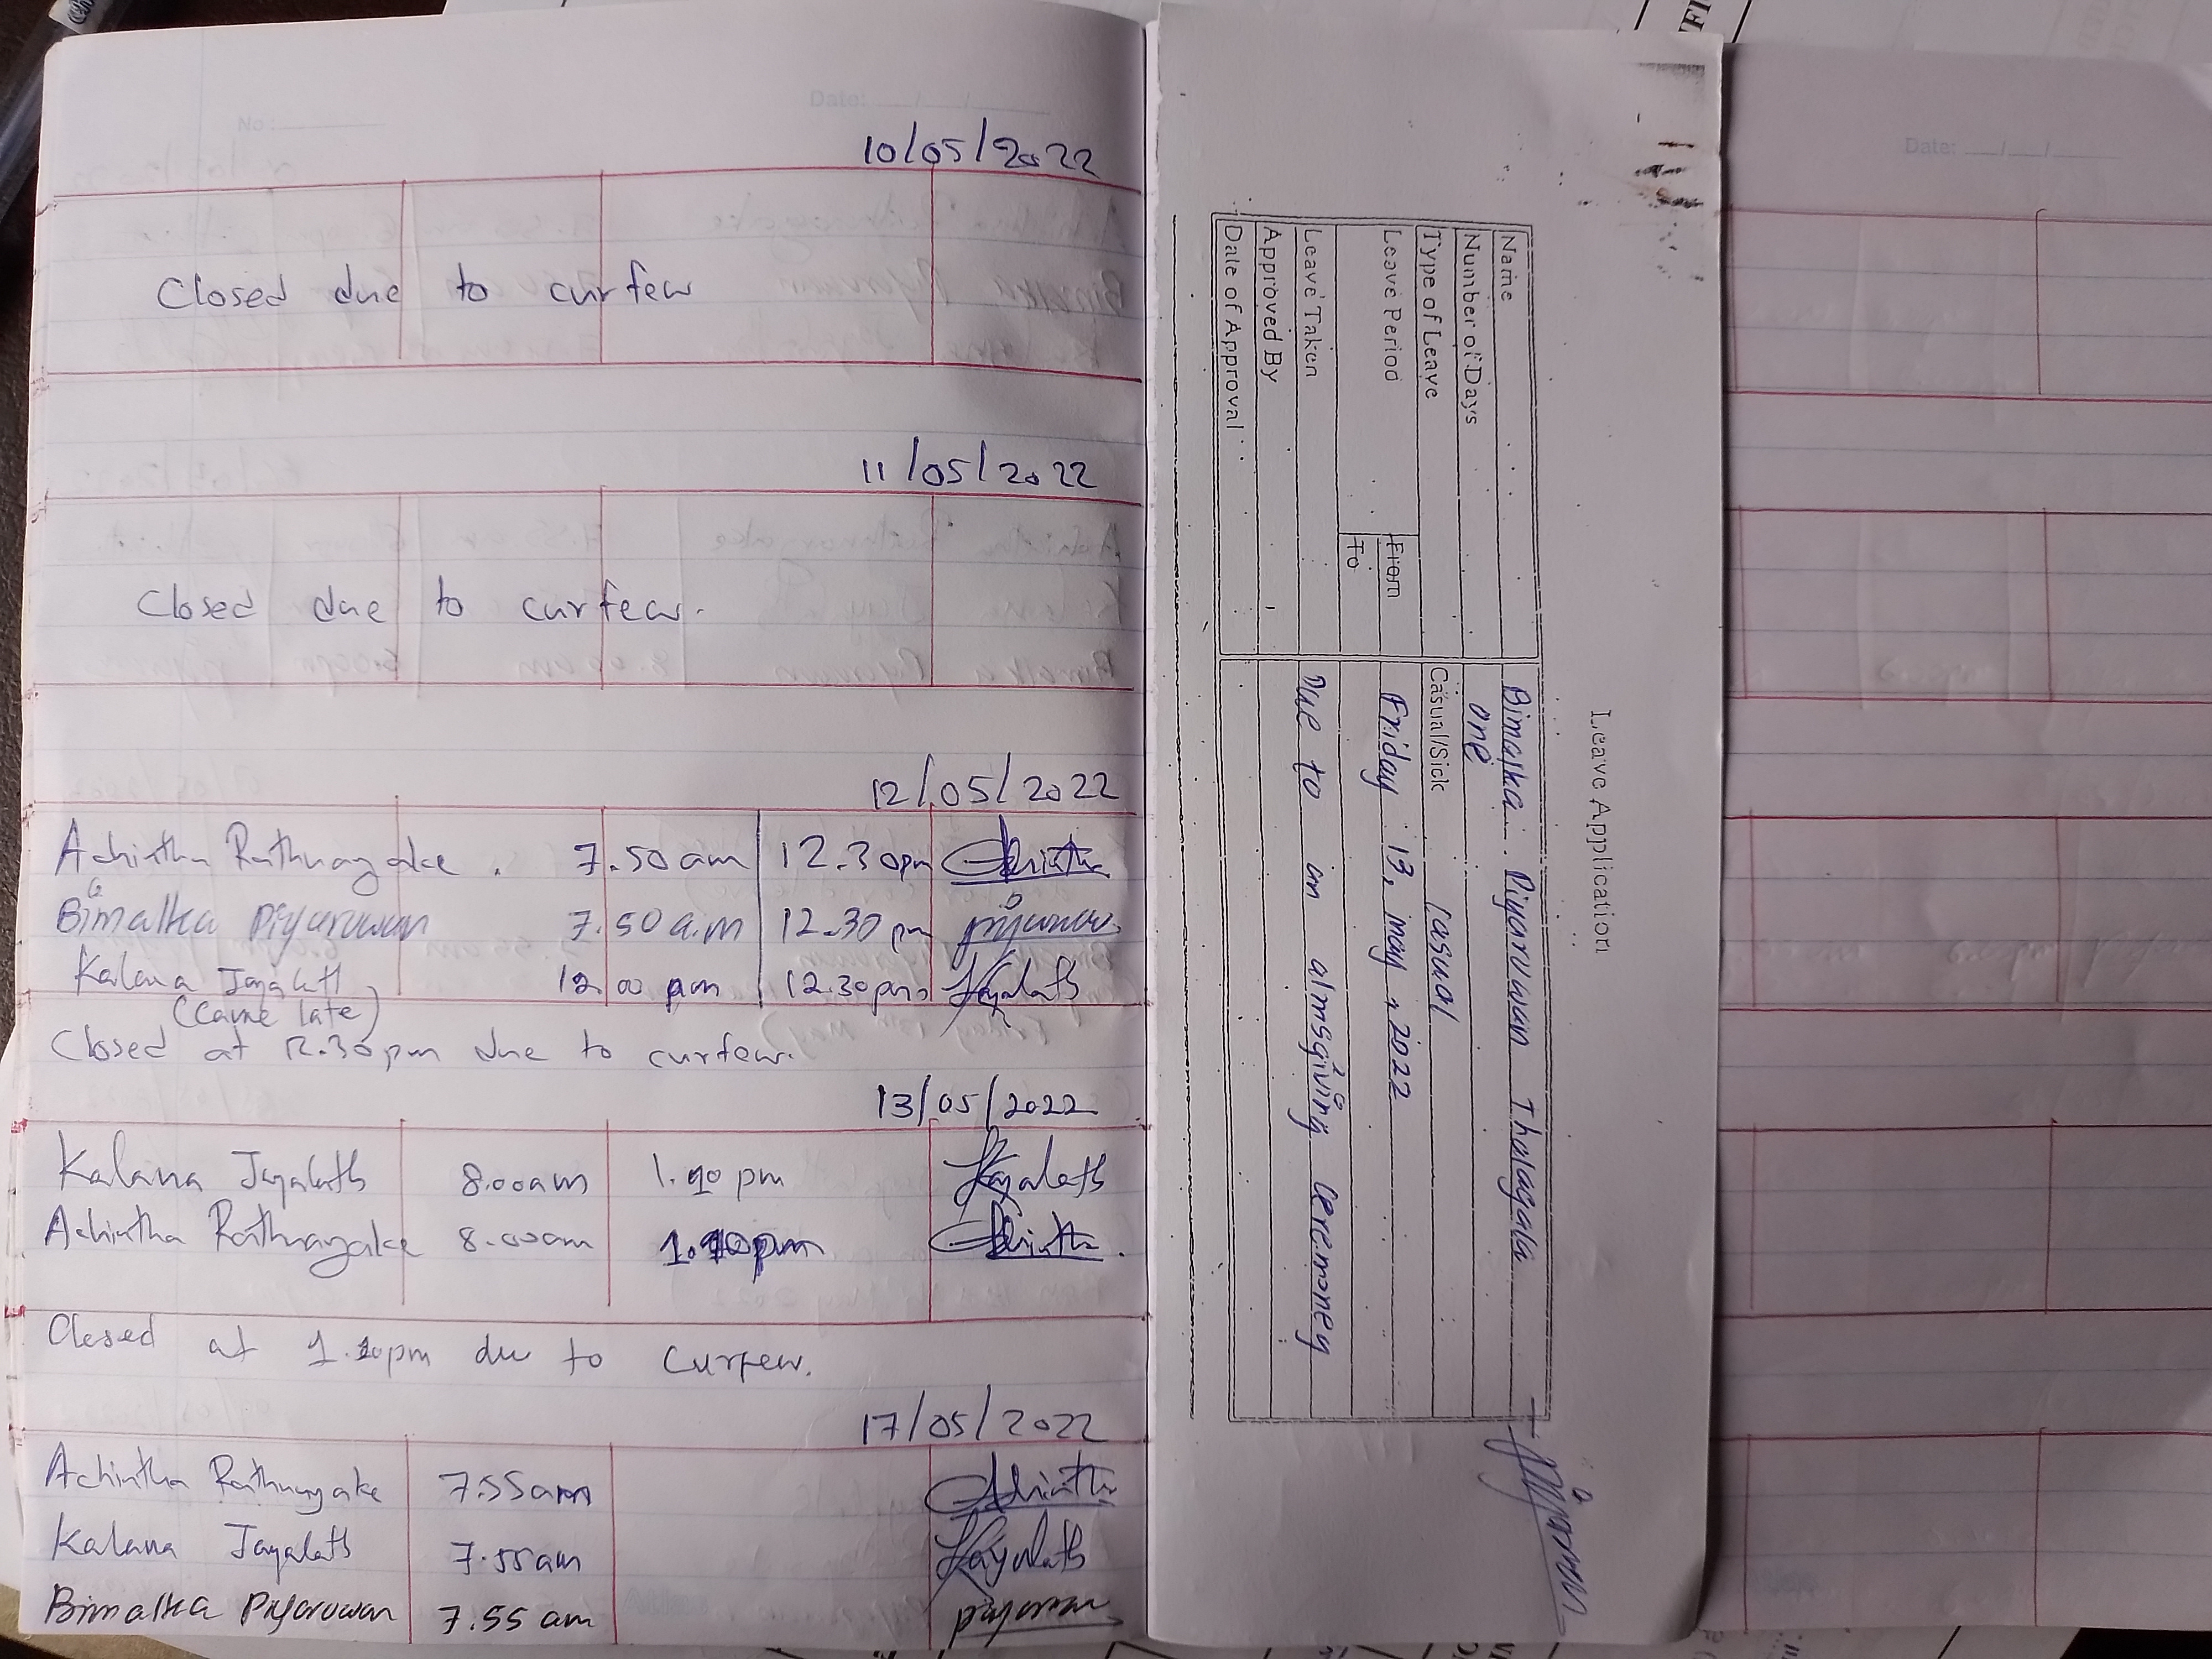 No:
Date: __/__/__
10/05/2022
Closed due to curfew
11/05/2022
Closed due to curfew.
12/05/2022
Achintha Rathnayake . 7.50 am 12.30pm Achintha
Bimalka Piyaruwan 7.50 a.m 12.30 pm
Kalana Jayalath 12.00 pm 12.30pm Jayalath
(came late)
Closed at 12.30pm due to curfew.
13/05/2022
Kalana Jayalath 8.00am 1.10 pm Jayalath
Achintha Rathnayake 8.00am 1.10pm Achintha
Closed at 1.10pm due to curfew.
17/05/2022
Achintha Rathnayake 7.55am Achintha
Kalana Jayalath 7.55am Jayalath
Bimalka Piyaruwan 7.55 am
Leave Application
Name Bimalka Piyaruwan Thalagala
Number of Days one
Type of Leave Casual/Sick casual
Leave Period From Friday 13, may, 2022
To
Leave Taken Due to an almsgiving ceremoney
Approved By
Date of Approval
Date: __/__/__